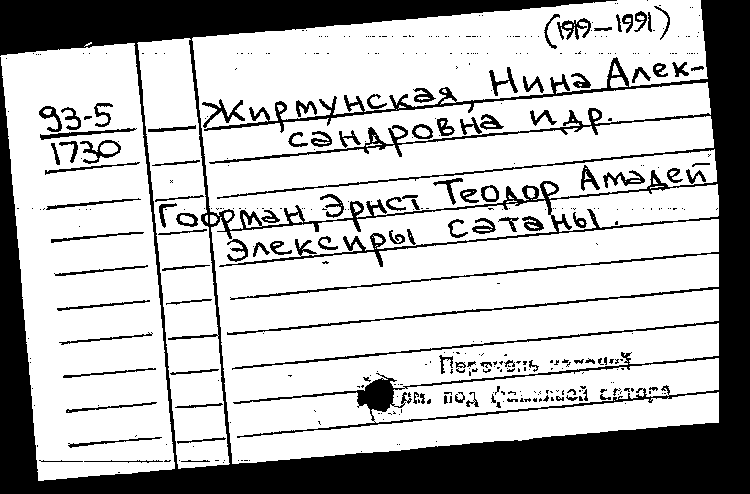 (1919-1991)
93-5
1730
Жирмунская, Нина Алек-
сандровна и др.
Гофман, Эрнст Теодор Амадей
Элексиры сатаны.
Перечень изданий
см. под фамилией автора